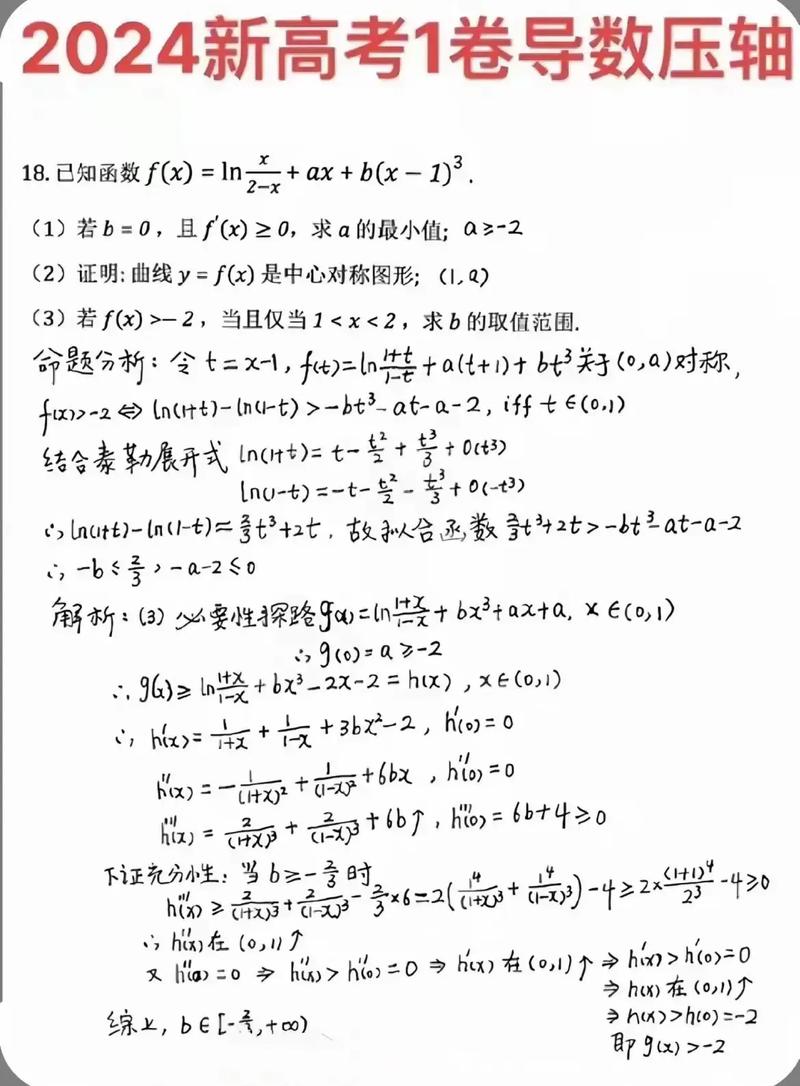 2024新高考1卷导数压轴
18.已知函数 f(x) = ln x/(2−x) + ax + b(x − 1)³.
（1）若 b = 0，且 f′(x) ≥ 0，求 a 的最小值; a≥-2
（2）证明: 曲线 y = f(x) 是中心对称图形; (1,a)
（3）若 f(x) >− 2，当且仅当 1 < x < 2，求 b 的取值范围.
命题分析: 令 t=x-1, f(t)=ln (1+t)/(1-t) + a(t+1) + bt³ 关于 (0,a) 对称,
f(x)>-2 ⇔ ln(1+t)-ln(1-t) > -bt³-at-a-2, iff t∈(0,1)
结合泰勒展开式 ln(1+t)= t - t²/2 + t³/3 + o(t³)
ln(1-t)= -t - t²/2 - t³/3 + o(-t³)
∴ ln(1+t)-ln(1-t) ≈ 2/3 t³+2t, 故拟合函数 2/3 t³+2t > -bt³-at-a-2
∴ -b ≤ 2/3, -a-2≤0
解析: (3) 必要性探路 g(x)=ln (1+x)/(1-x) + bx³+ax+a, x∈(0,1)
∴ g(0)=a≥-2
∴ g(x)≥ ln (1+x)/(1-x) + bx³-2x-2 = h(x), x∈(0,1)
∴ h′(x)= 1/(1+x) + 1/(1-x) + 3bx²-2, h′(0)=0
h″(x) = - 1/(1+x)² + 1/(1-x)² + 6bx, h″(0)=0
h‴(x) = 2/(1+x)³ + 2/(1-x)³ + 6b↑, h‴(0) = 6b+4≥0
下证充分性: 当 b≥ -2/3 时
h‴(x) ≥ 2/(1+x)³ + 2/(1-x)³ - 2/3 ×6 = 2( 1⁴/(1+x)³ + 1⁴/(1-x)³ ) -4 ≥ 2× (1+1)⁴/2³ -4≥0
∴ h″(x) 在 (0,1)↑
又 h″(0)=0 ⇒ h″(x) > h″(0) = 0 ⇒ h′(x) 在 (0,1)↑ ⇒ h′(x) > h′(0)=0
⇒ h(x) 在 (0,1)↑
⇒ h(x) > h(0) = -2
即 g(x) > -2
综上, b∈[-2/3, +∞)